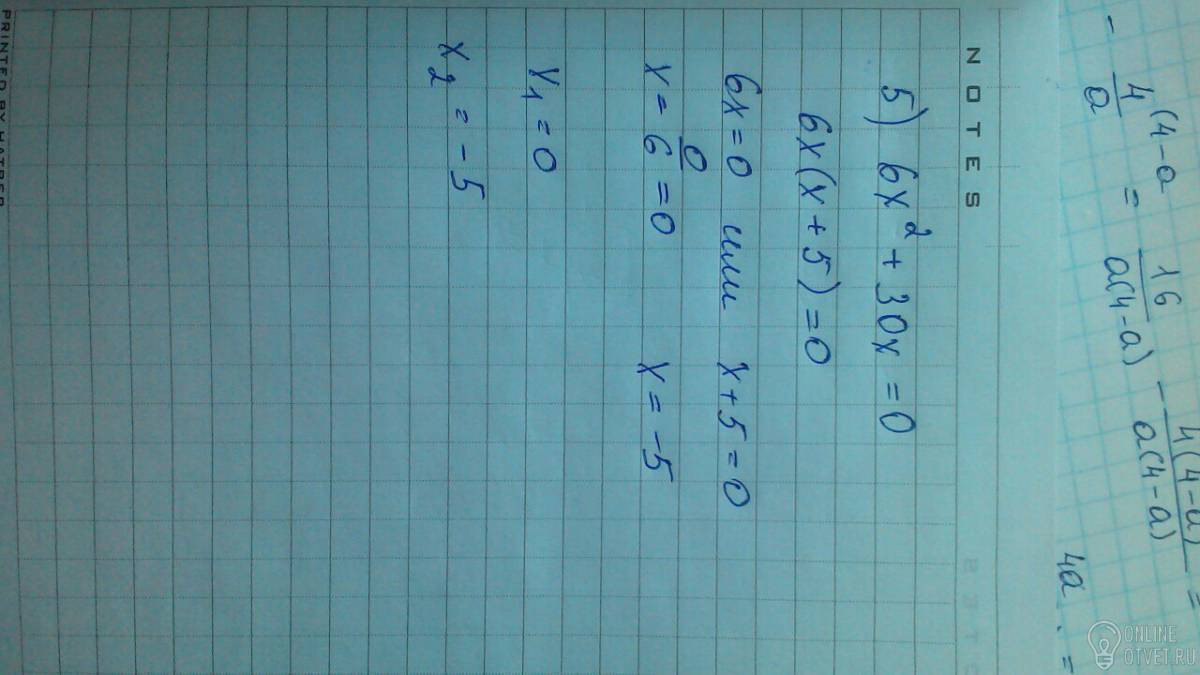 - 4/a (4-a = 16/(a(4-a)) - 4(4-a)/(a(4-a)) =
4a =
NOTES
5) 6x² + 30x = 0
6x(x + 5) = 0
6x = 0 или x + 5 = 0
x = 0/6 = 0 x = -5
x₁ = 0
x₂ = -5
PRINTED BY HATBER
ONLINE
OTVET.RU